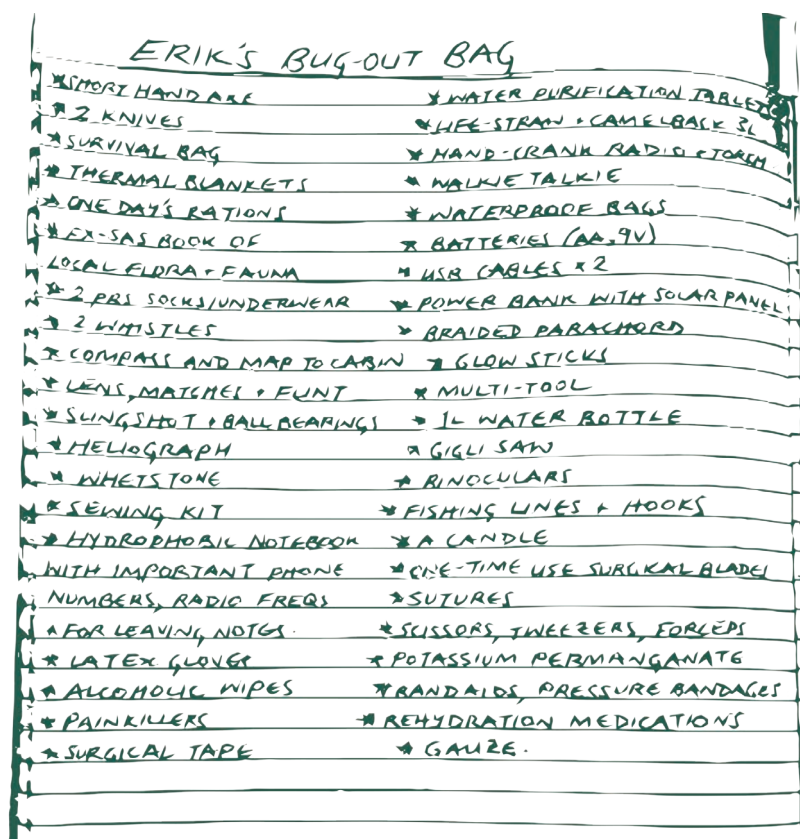 ERIK'S BUG-OUT BAG
* SHORT HAND AXE
* 2 KNIVES
* SURVIVAL BAG
* THERMAL BLANKETS
* ONE DAY'S RATIONS
* EX-SAS BOOK OF
LOCAL FLORA + FAUNA
* 2 PRS SOCKS/UNDERWEAR
* 2 WHISTLES
* COMPASS AND MAP TO CABIN
* LENS, MATCHES + FLINT
* SLINGSHOT + BALL BEARINGS
* HELIOGRAPH
* WHETSTONE
* SEWING KIT
* HYDROPHOBIC NOTEBOOK
WITH IMPORTANT PHONE
NUMBERS, RADIO FREQS
* FOR LEAVING NOTES.
* LATEX GLOVES
* ALCOHOLIC WIPES
* PAINKILLERS
* SURGICAL TAPE
* WATER PURIFICATION TABLETS
* LIFE-STRAW + CAMELBACK 3L
* HAND-CRANK RADIO + TORCH
* WALKIE TALKIE
* WATERPROOF BAGS
* BATTERIES (AA, 9V)
* USB CABLES x 2
* POWER BANK WITH SOLAR PANEL
* BRAIDED PARACHORD
* GLOW STICKS
* MULTI-TOOL
* 1L WATER BOTTLE
* GIGLI SAW
* BINOCULARS
* FISHING LINES + HOOKS
* A CANDLE
* ONE-TIME USE SURGICAL BLADES
* SUTURES
* SCISSORS, TWEEZERS, FORCEPS
* POTASSIUM PERMANGANATE
* BANDAIDS, PRESSURE BANDAGES
* REHYDRATION MEDICATIONS
* GAUZE.